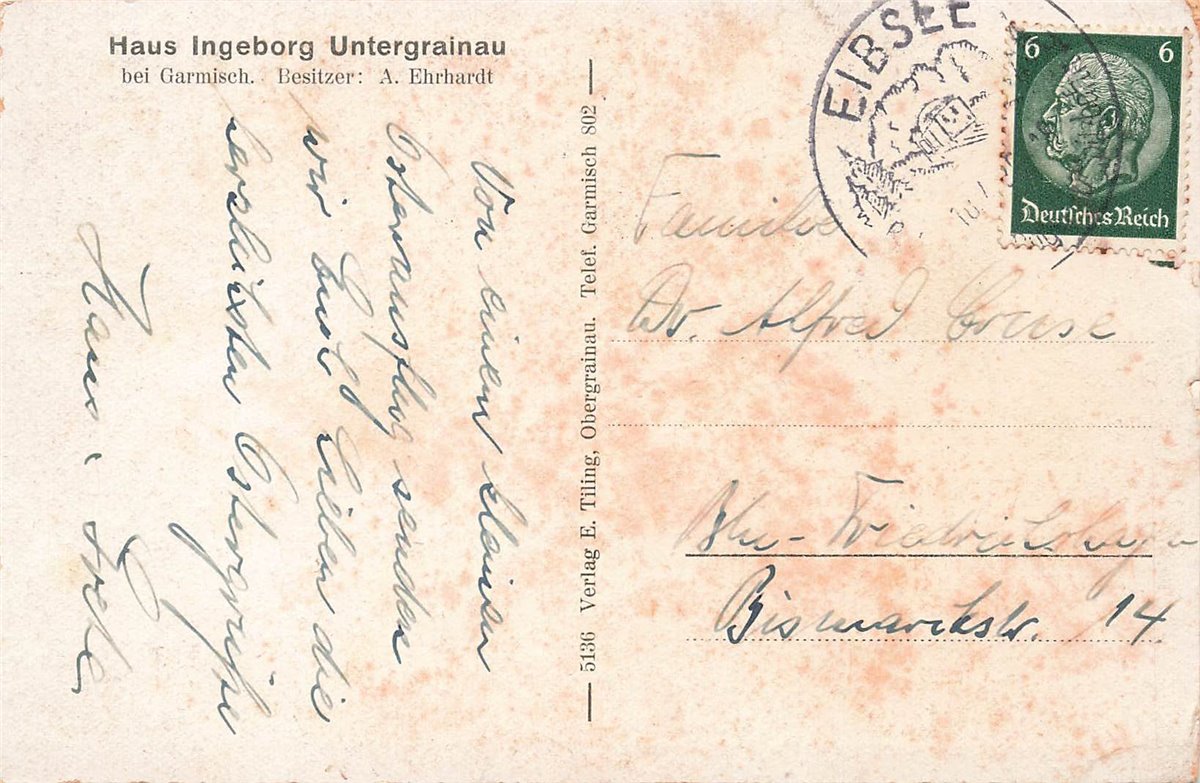 Haus Ingeborg Untergrainau
bei Garmisch. Besitzer: A. Ehrhardt
Von einem kleinen
Osterausflug senden
wir Euch Lieben die
herzlichsten Ostergrüße
Hans
5136 Verlag E. Tiling, Obergrainau. Telef. Garmisch 802
EIBSEE
6 6
Deutsches Reich
Familie
Dr. Alfred Cruse
Bln-Friedrichshagen
Bismarckstr. 14